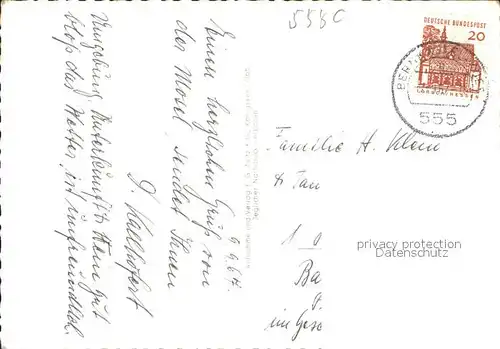 555C
DEUTSCHE BUNDESPOST
20
LORSCH/HESSEN
555
9.9.67.
Einen herzlichen Gruß von
der Mosel sendet Ihnen
D. Kallhofert
Umgebung, Unterkunft, Wein gut
bloß das Wetter ist unfreundlich.
Familie H. Klein
& Tan
1 0
Ba
im Gesc
privacy protection
Datenschutz